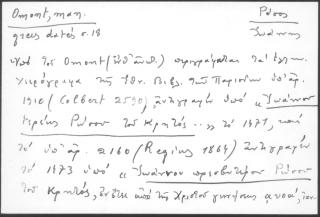 Omont, man. Ρῶσος
grecs datés σ. 18 Ἰωάννης
Ὑπὸ τοῦ Omont περιγράφεται τὰ ἑλλην.
χειρόγραφα τῆς Ἐθν. Βιβλ. τῶν Παρισίων ὑπ' ἀρ.
1910 (Colbert 2590), ἀντιγραφὲν ὑπὸ « Ἰωάννου
ἱερέως Ρώσου τοῦ Κρητός... » τῷ 1471, καὶ
τὸ ὑπ' ἀρ. 2160 (Regius 1864) ἀντιγραφὲν
τῷ 1473 ὑπὸ « Ἰωάννου πρεσβυτέρου Ρώσου
τοῦ Κρητός, ἀπὸ τῆς Χριστοῦ γεννήσεως αυοα΄,